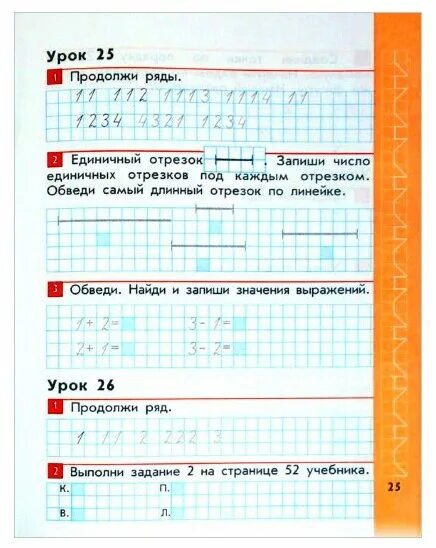 Урок 25
1 Продолжи ряды.
11 112 1113 1114 11
1234 4321 1234
2 Единичный отрезок . Запиши число
единичных отрезков под каждым отрезком.
Обведи самый длинный отрезок по линейке.
3 Обведи. Найди и запиши значения выражений.
1+2= 3-1=
2+1= 3-2=
Урок 26
1 Продолжи ряд.
1 11 2 222 3
2 Выполни задание 2 на странице 52 учебника.
К. П.
В. Л.
25